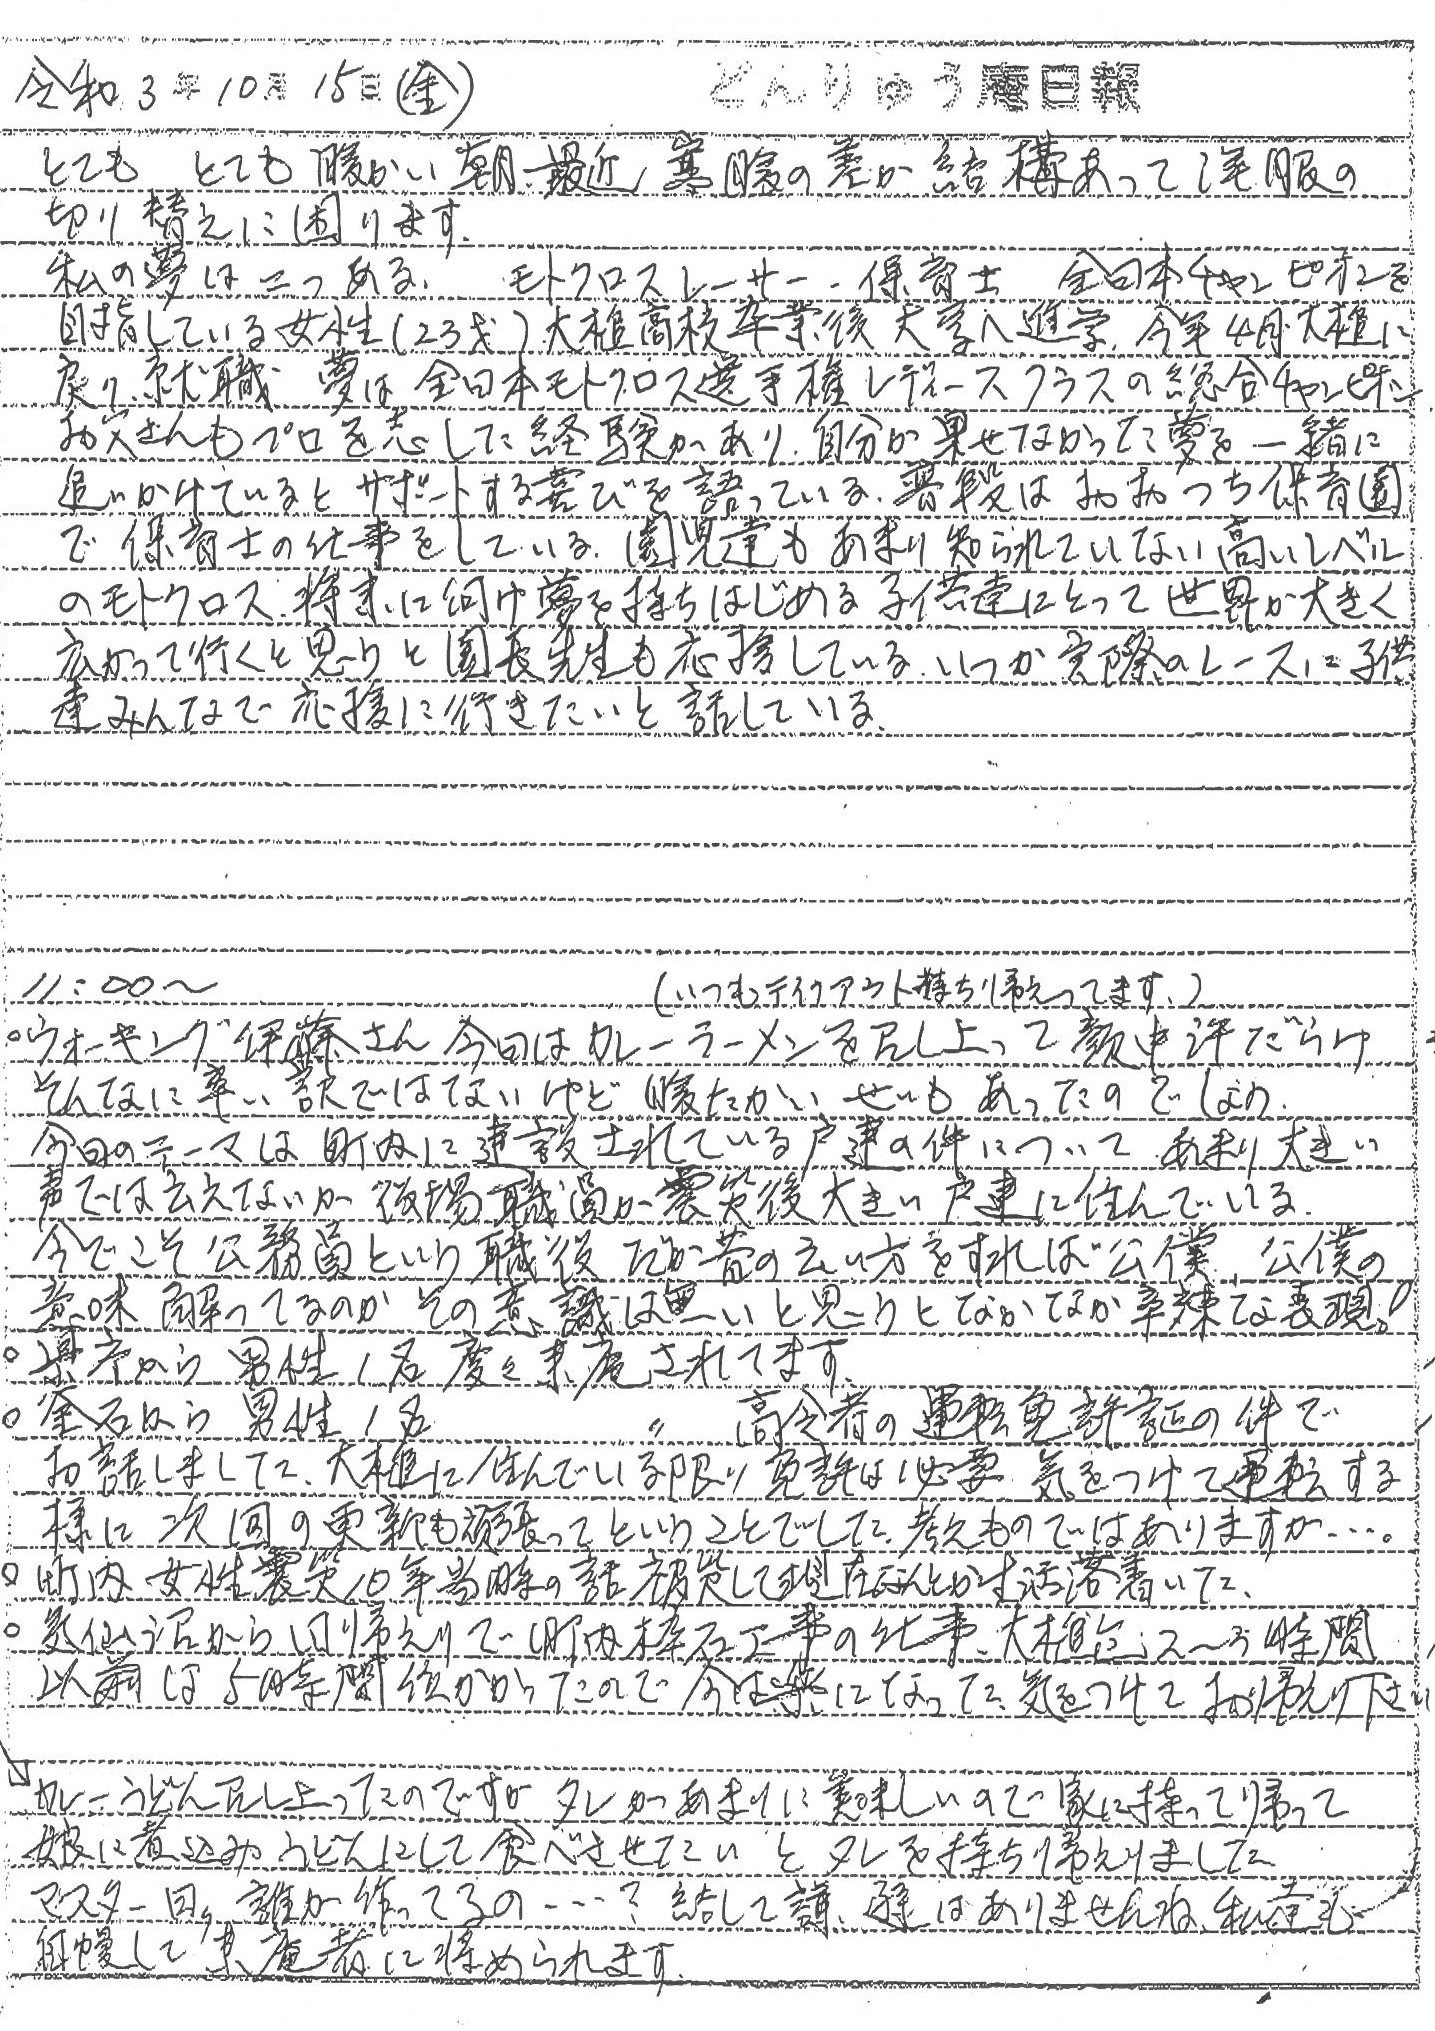 令和 3年 10月 15日(金) どんりゅう庵日報
とても とても 暖かい 朝、最近、寒暖の差が結構あって洋服の
切り替えに困ります。
私の夢は二つある、 モトクロスレーサー・保育士 全日本チャンピオンを
目指している女性(23才)大槌高校卒業後大学へ進学、今年4月大槌に
戻り、就職 夢は全日本モトクロス選手権レディースクラスの総合チャンピオン
お父さんもプロを志した経験があり、自分が果せなかった夢を一緒に
追いかけているとサポートする喜びを語っている、普段はおおつち保育園
で保育士の仕事をしている、園児達もあまり知られていない高いレベル
のモトクロス、将来に向け夢を持ちはじめる子供達にとって世界が大きく
広がって行くと思うと園長先生も応援している、いつか実際のレースに子供
達みんなで応援に行きたいと話している、
11:00〜 (いつもテイクアウト持ち帰ってます、)
○ウォーキング伊藤さん 今日はカレーラーメンを召し上って顔中汗だらけ
そんなに辛い訳ではないけど暖たかいせいもあったのでしょう、
今日のテーマは町内に建設されている戸建の件について あまり大きい
声では云えないが役場職員が震災後大きい戸建に住んでいる、
今でこそ公務員という職後 だが昔の云い方をすれば公僕、公僕の
意味 解ってるのかその意識は無いと思うとなかなか辛辣な表現。
○ 県庁から 男性1名 度々来庵されてます、
○ 釜石から 男性1名 〃 高令者の運転免許証の件で
お話しました、大槌に住んでいる限り免許は必要 気をつけて運転する
様に次回の更新も頑張ってということでした、考えものではありますが…。
○ 町内 女性 震災10年当時の話 被災して現在なんとか生活落着いた、
○ 気仙沼から日帰えりで町内枠石工事の仕事、大槌迄2〜3時間
以前は5時間位かかったので今は楽になった、気をつけてお帰えり下さい
カレーうどん召し上ったのですがタレがあまりに美味しいので家に持って帰って
娘に煮込みうどんにして食べさせたいとタレを持ち帰えりました
マスター曰, 誰が作ってるの…? 決して謙遜はありませんね、私達も
自慢して来庵者に奨められます、